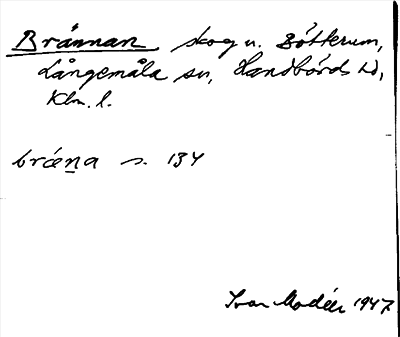 Brännan skog u. Bötterum,
Långemåla sn, Handbörds hd,
Klm. l.
bräṉa s. 134
Ivar Modéer 1947